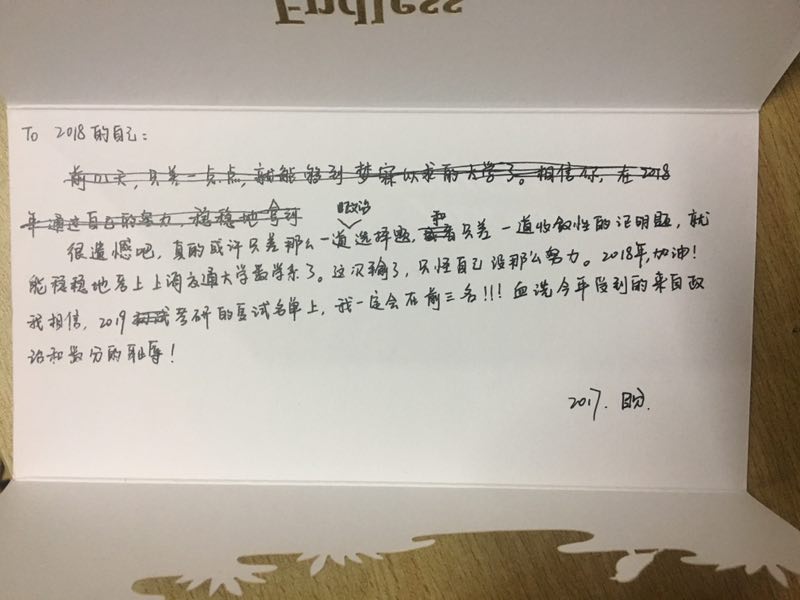 Endless
To 2018的自己：
前几天，只差一点点，就能够到梦寐以求的大学了。相信你，在2018
年通过自己的努力，稳稳地拿到
很遗憾吧，真的或许只差那么一道政治选择题，和只差一道收敛性的证明题，就
能稳稳地考上上海交通大学数学系了。这次输了，只怪自己没那么努力。2018年，加油！
我相信，2019考研的复试名单上，我一定会在前三名！！！血洗今年受到的来自政
治和数分的耻辱！
2017.